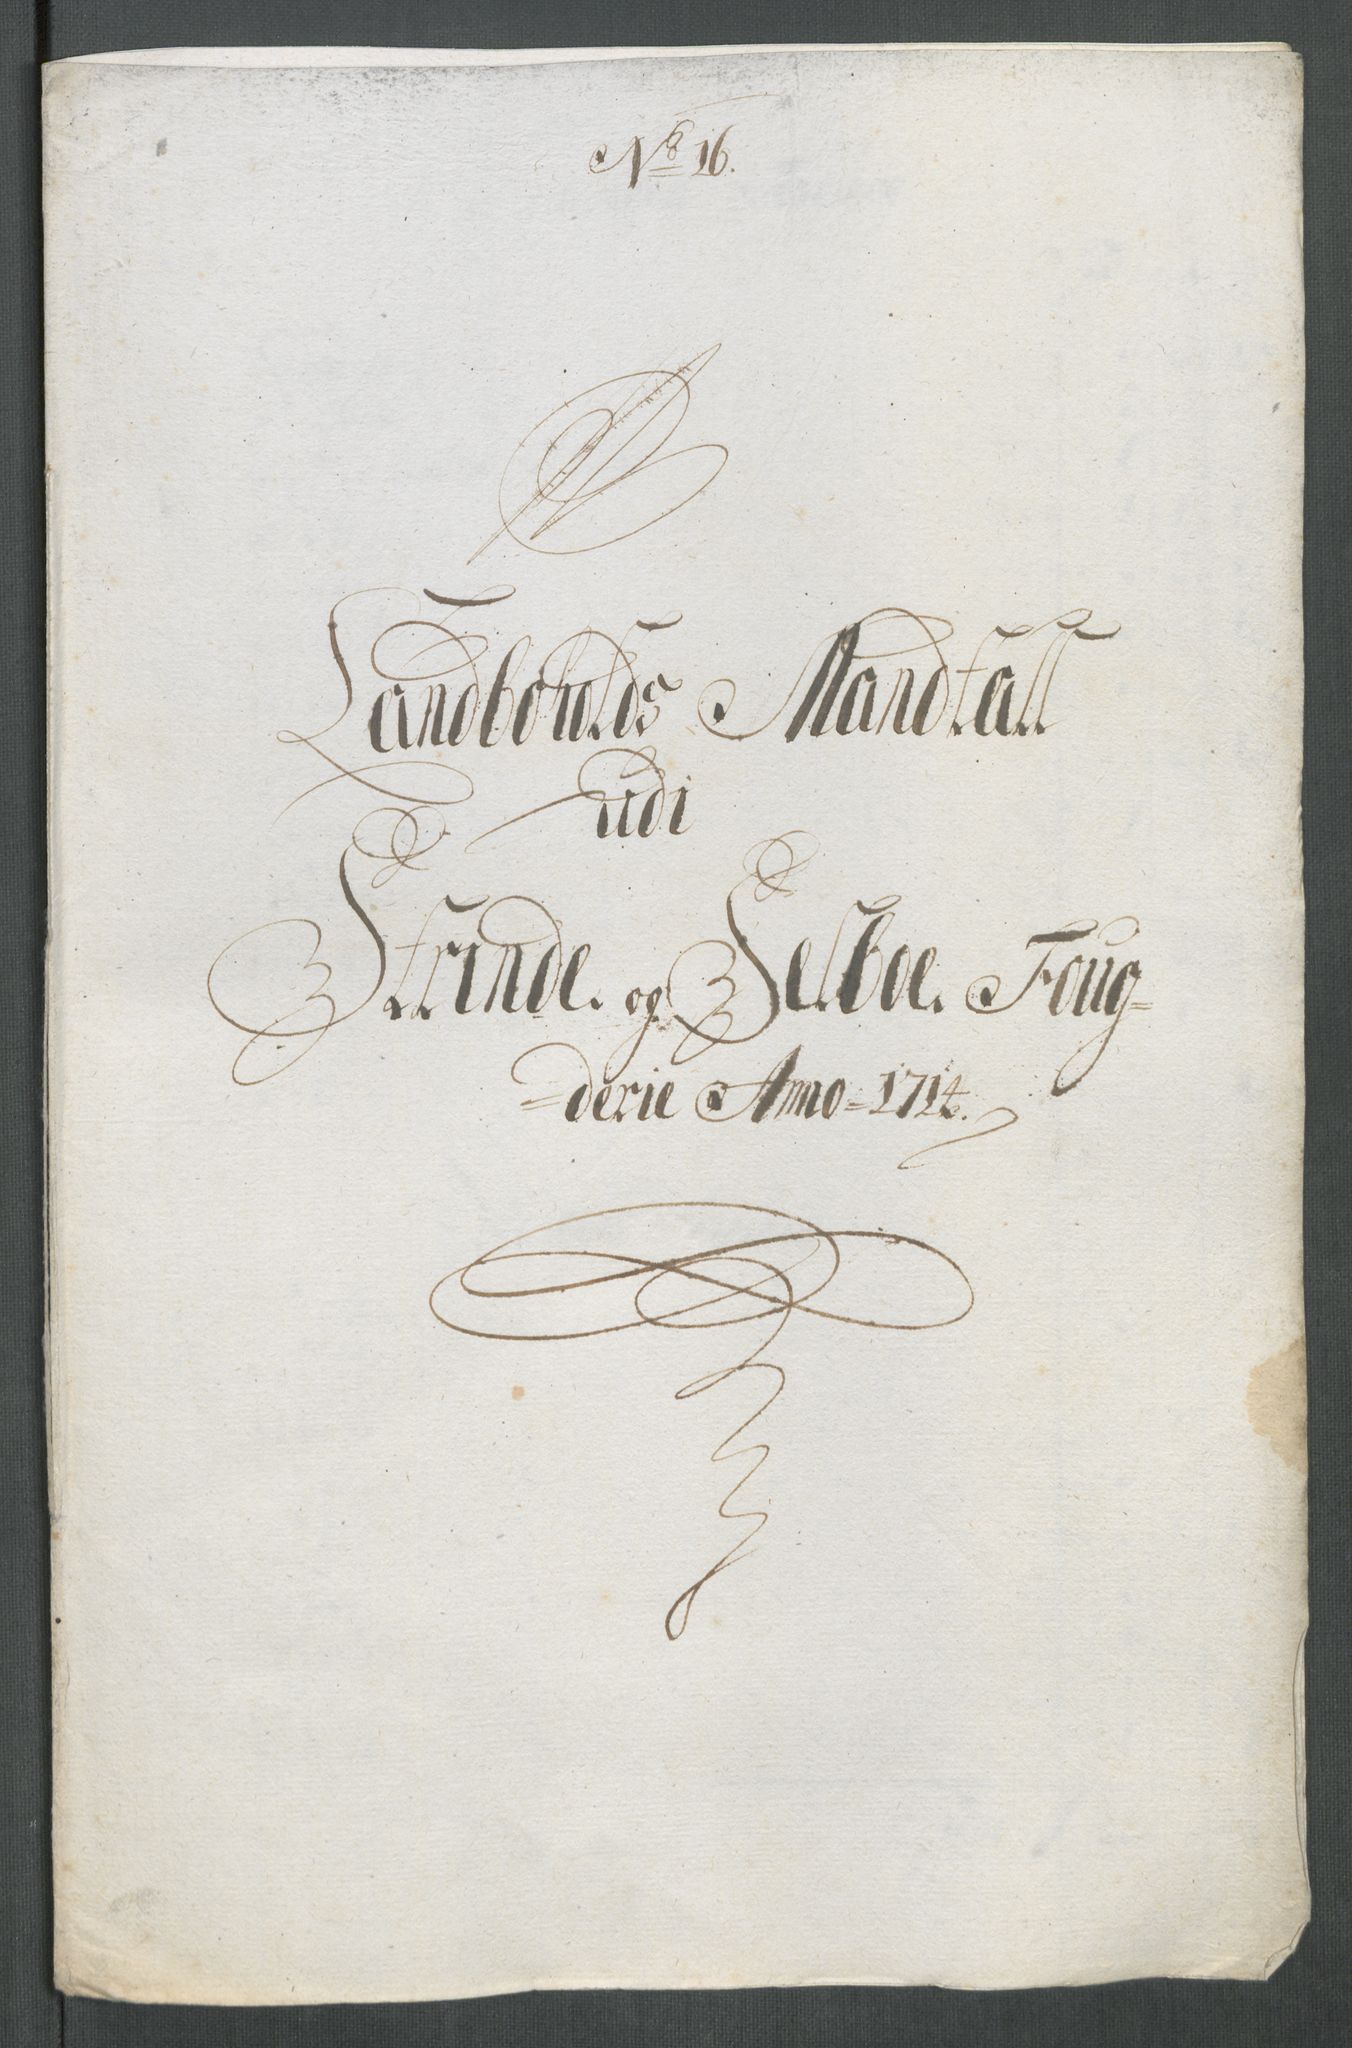 No 16.
Landboholds Mandtall
udi
Strinde og Selboe Foug-
=derie Anno=1714.